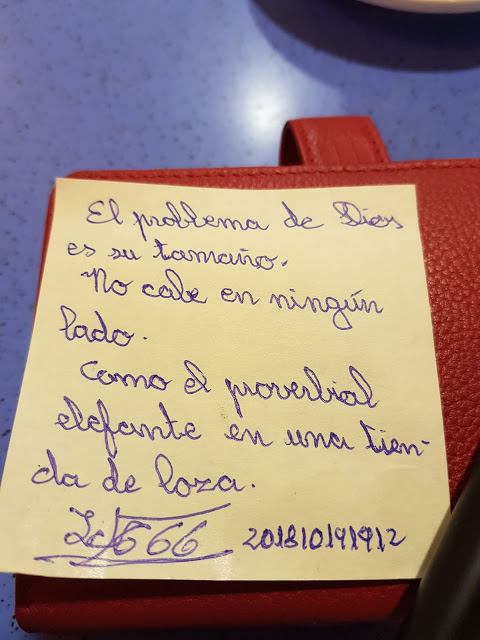 El problema de Dios
es su tamaño.
No cabe en ningún
lado.
Como el proverbial
elefante en una tien-
da de loza.
666 201810191912